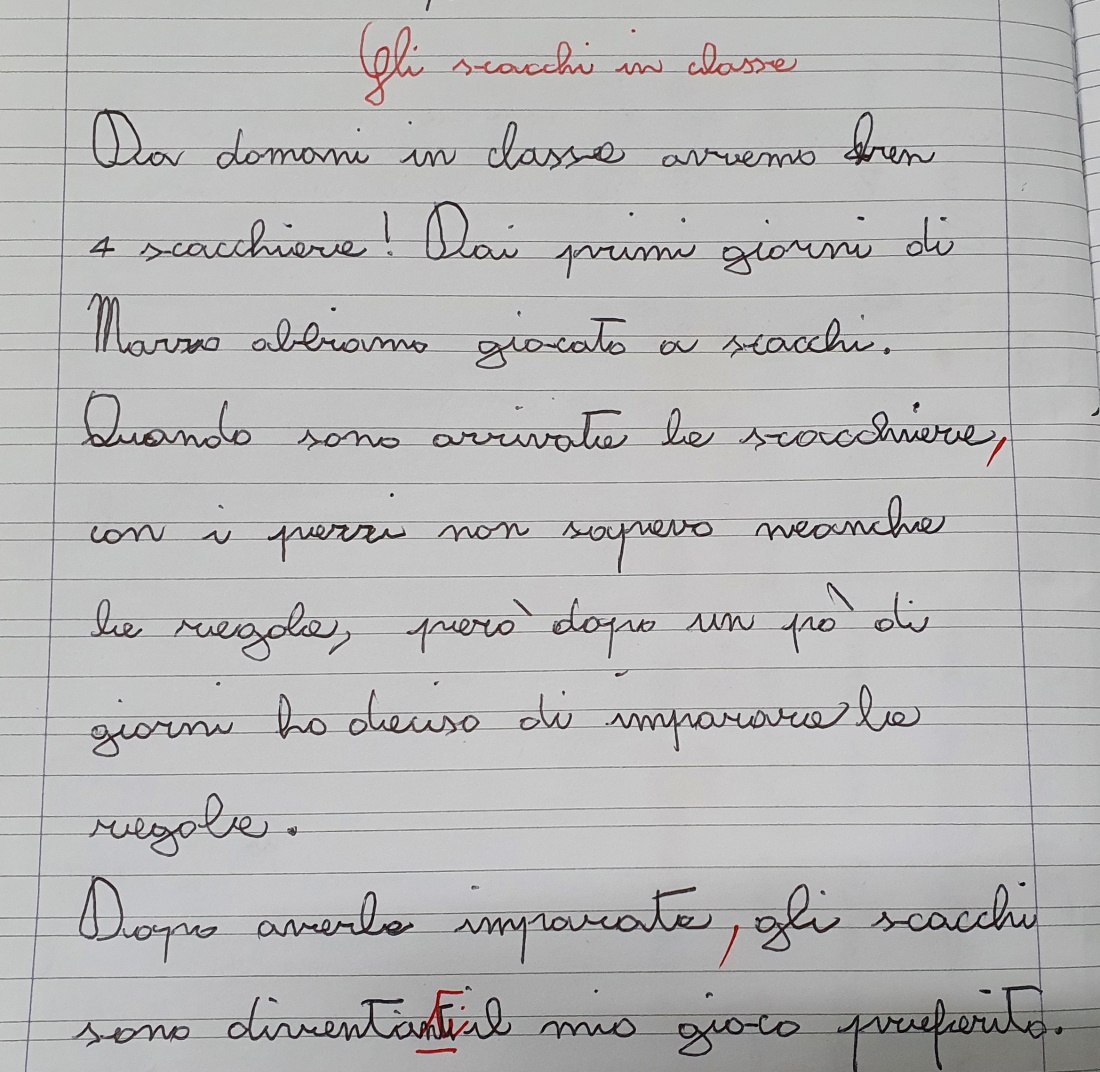 Gli scacchi in classe
Da domani in classe avremo ben
4 scacchiere! Dai primi giorni di
Marzo abbiamo giocato a scacchi.
Quando sono arrivate le scacchiere,
con i pezzi non sapevo neanche
le regole, però dopo un pò di
giorni ho deciso di imparare le
regole.
Dopo averle imparate, gli scacchi
sono diventati il mio gioco preferito.